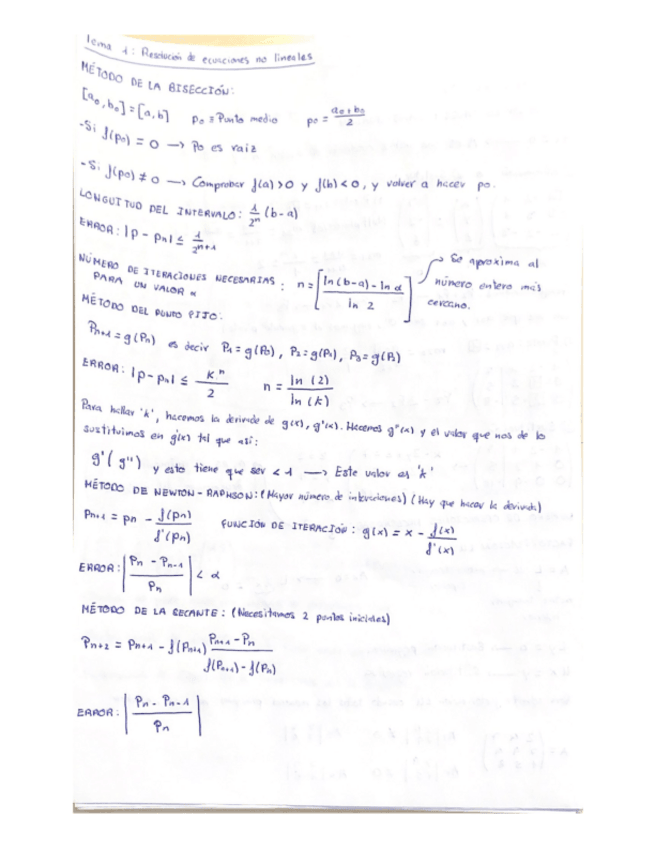 Tema 1: Resolución de ecuaciones no lineales
MÉTODO DE LA BISECCIÓN:
[a₀, b₀] = [a, b] p₀ ≡ Punto medio p₀ = (a₀+b₀)/2
- Si f(p₀) = 0 → P₀ es raiz
- Si f(p₀) ≠ 0 → Comprobar f(a)>0 y f(b)<0, y volver a hacer p₀.
LONGUITUD DEL INTERVALO: 1/2ⁿ (b-a)
ERROR: |p - pₙ| ≤ 1/2ⁿ⁺¹
NÚMERO DE ITERACIONES NECESARIAS PARA UN VALOR α : n = [(ln(b-a) - ln α)/ln 2] → Se aproxima al número entero más cercano.
MÉTODO DEL PUNTO FIJO:
Pₙ₊₁ = g(Pₙ) es decir P₁ = g(P₀), P₂ = g(P₁), P₃ = g(P₁)
ERROR: |p - pₙ| ≤ kⁿ/2 n = ln (2)/ln (k)
Para hallar 'k', hacemos la derivada de g(x), g'(x). Hacemos g''(x) y el valor que nos de lo
sustituimos en g'(x) tal que así:
g'(g'') y esto tiene que ser < 1 → Este valor es 'k'
MÉTODO DE NEWTON-RAPHSON: (Mayor número de interaciones) (Hay que hacer la derivada)
Pₙ₊₁ = pₙ - f(pₙ)/f'(pₙ) FUNCIÓN DE ITERACIÓN: g(x) = x - f(x)/f'(x)
ERROR: |(Pₙ - Pₙ₋₁)/Pₙ| < α
MÉTODO DE LA SECANTE: (Necesitamos 2 puntos iniciales)
Pₙ₊₂ = Pₙ₊₁ - f(Pₙ₊₁) (Pₙ₊₁ - Pₙ)/(f(Pₙ₊₁) - f(Pₙ))
ERROR: |(Pₙ - Pₙ₋₁)/Pₙ|